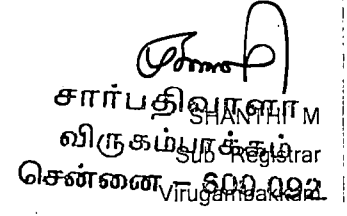 சார்பதிவாளர்
SHANTHI M
விருகம்பாக்கம்
Sub Registrar
சென்னை – 600 092.
Virugambakkam